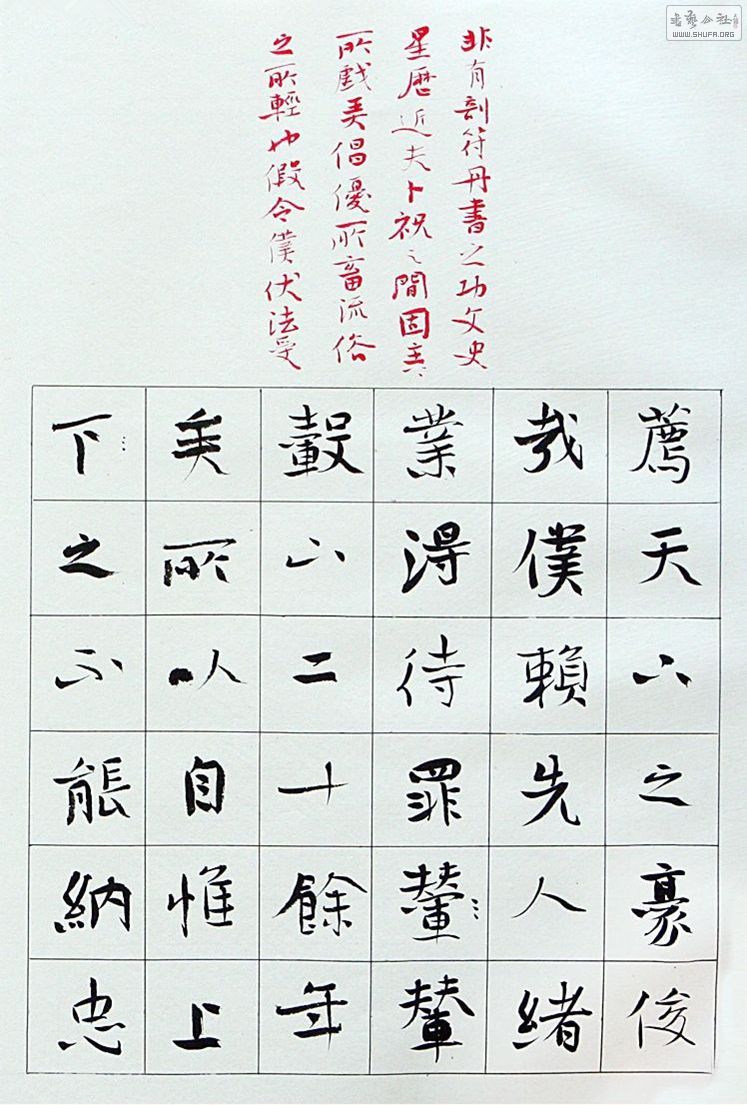 書藝公社
WWW.SHUFA.ORG
非有剖符丹書之功文史
星曆近夫卜祝之間固主上
所戲弄倡優所畜流俗
之所輕也假令僕伏法受
薦天下之豪俊
哉僕賴先人緒
業得待罪輦輦
轂下二十餘年
矣所以自惟上
下之不能納忠